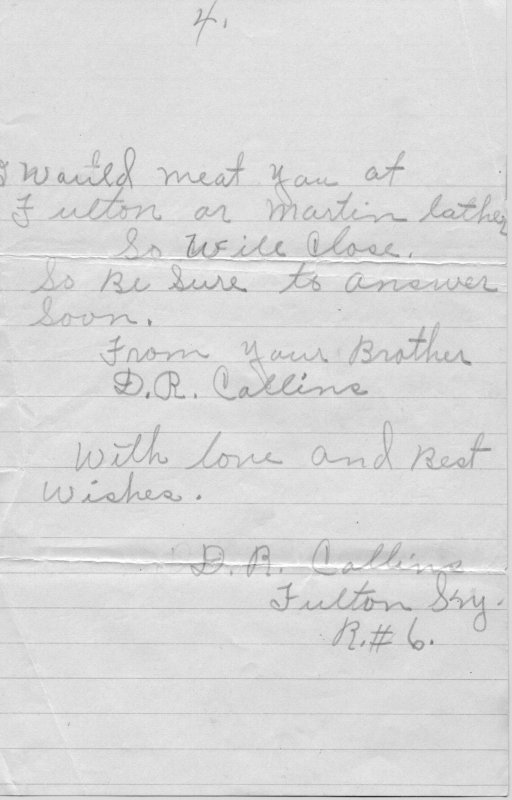 4.
I Would meat you at
Fulton or Martin Eather
So Will Close.
So Be Sure to answer
Soon.
From your Brother
D.R. Collins
With love and Best
Wishes.
D. R. Collins
Fulton Ky.
R.# 6.